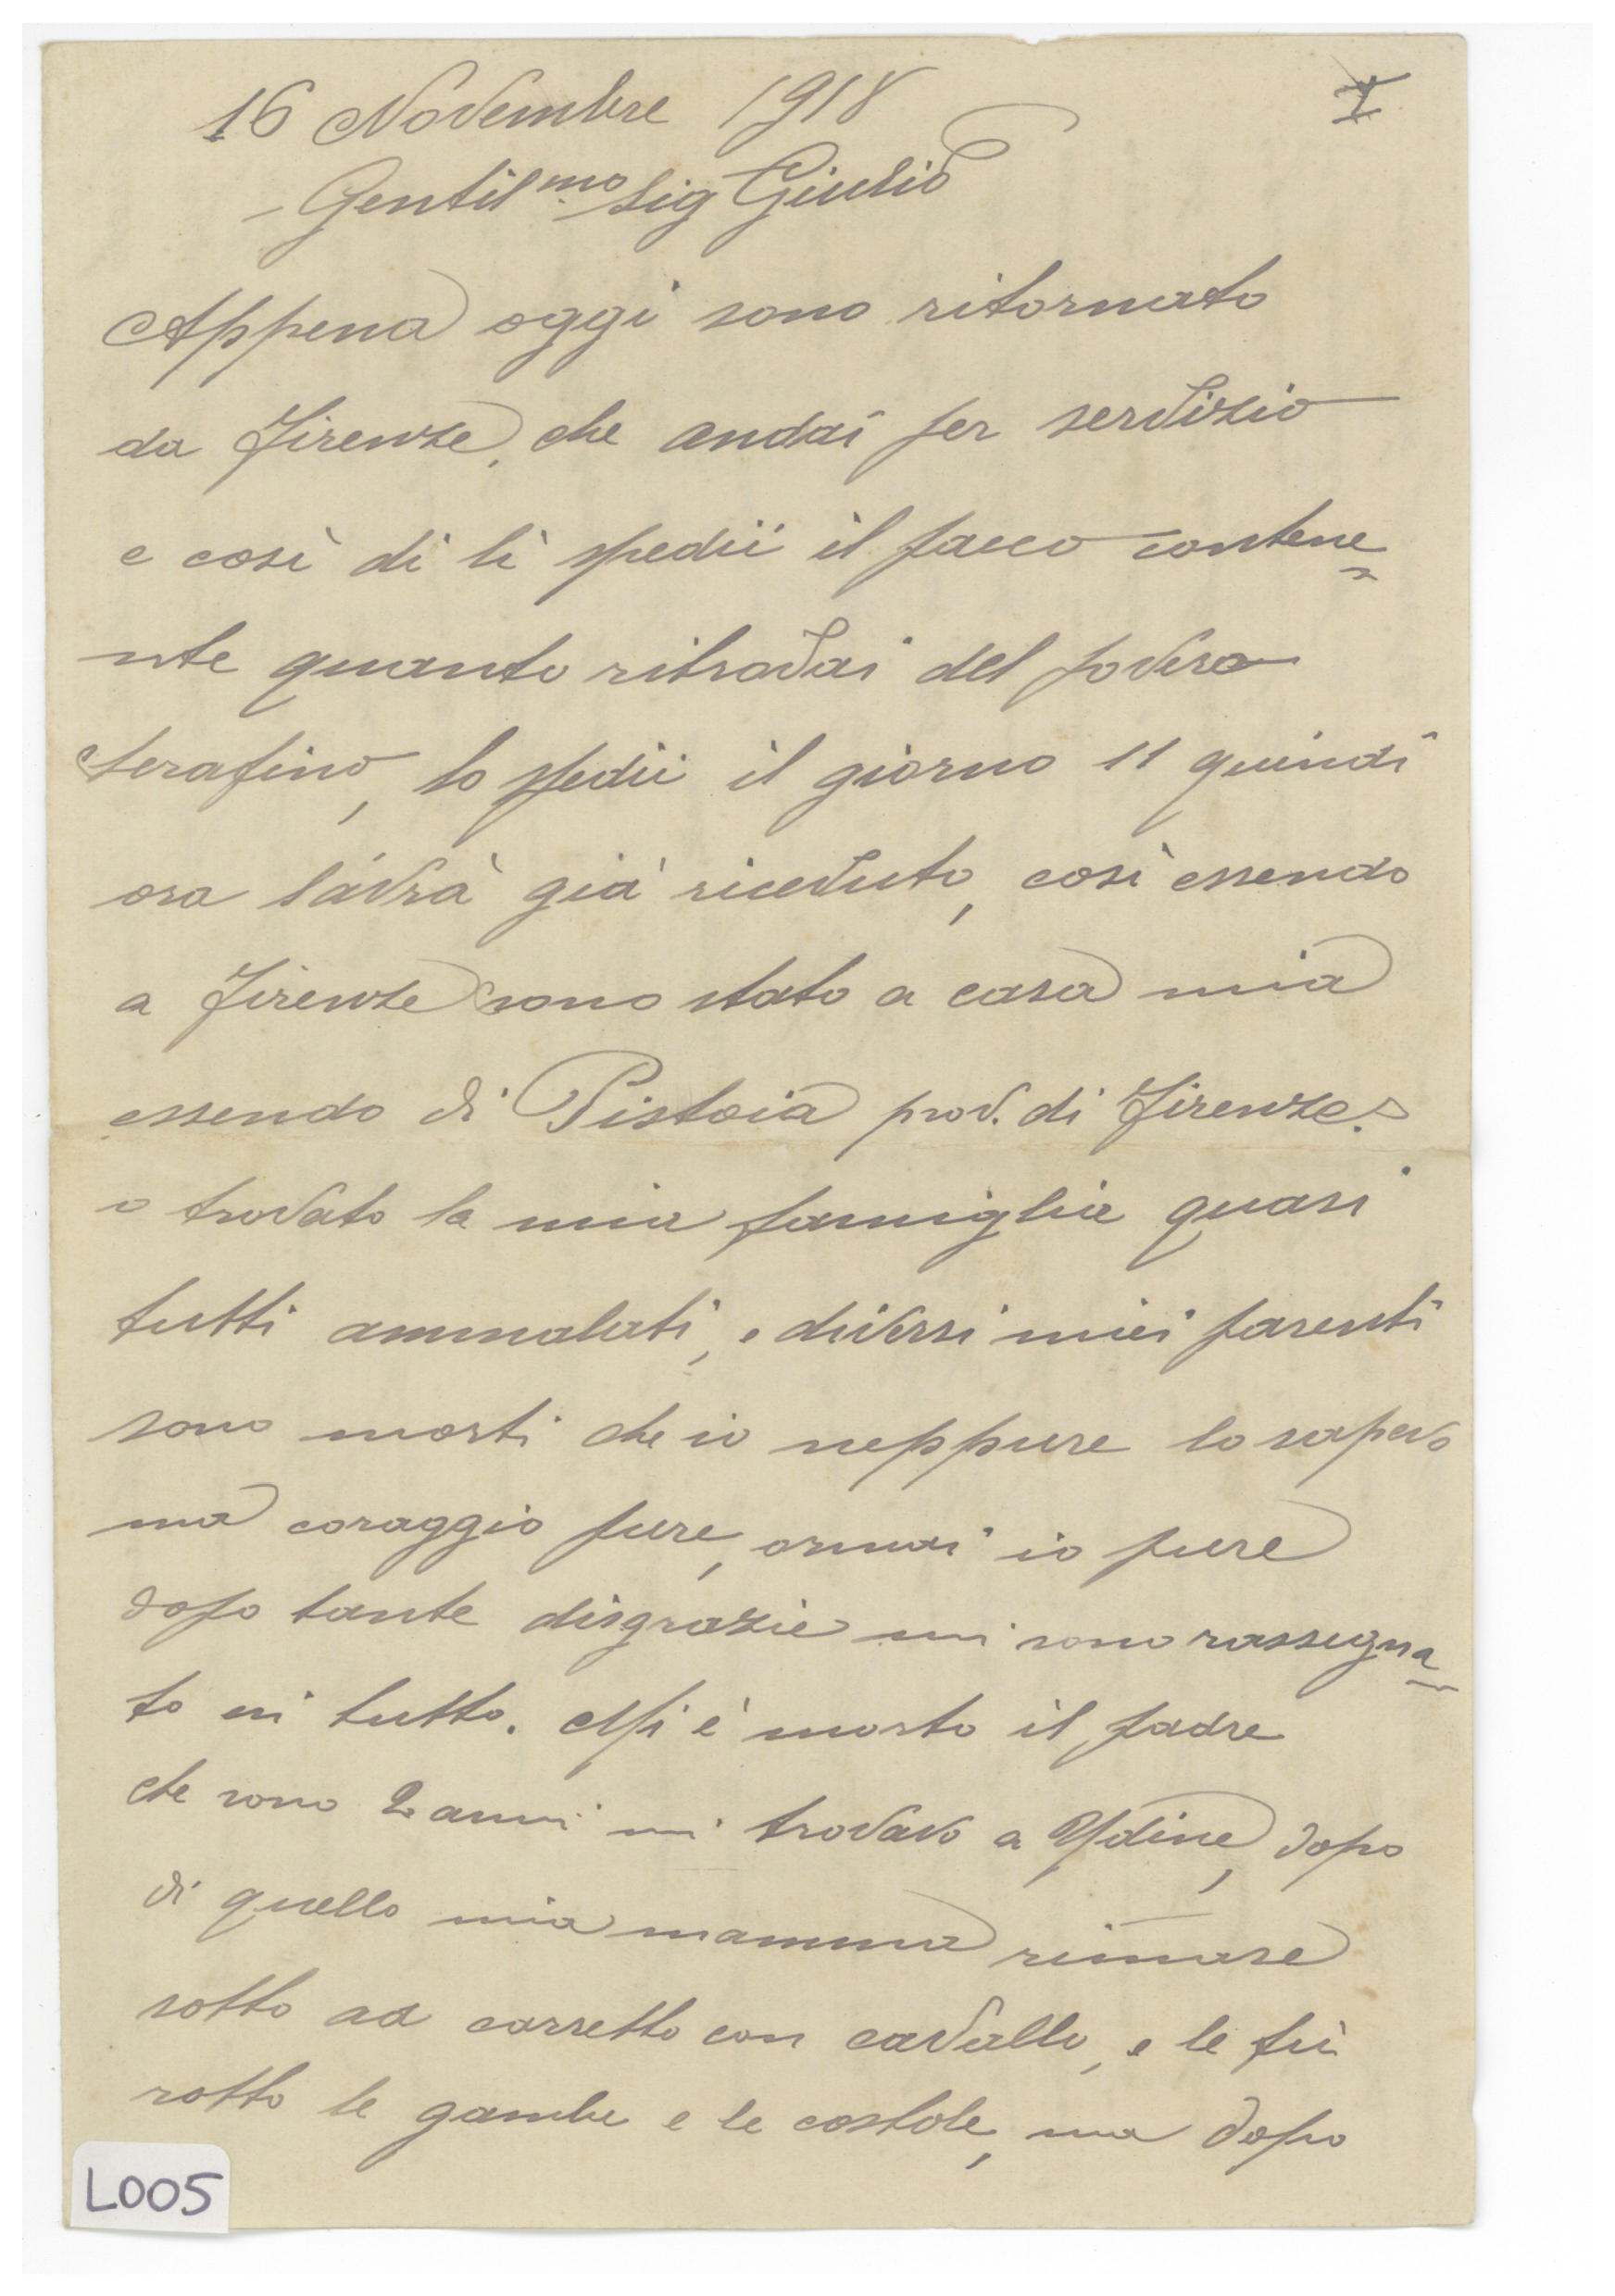 I
16 Novembre 1918
Gentilmo Sig Giulio
Appena oggi sono ritornato
da Firenze, che andai per servizio
e così di lì spedii il pacco contene
nte quanto ritrovai del povero
Serafino, lo spedii il giorno 11 quindi
ora l'avrà già ricevuto, così essendo
a Firenze sono stato a casa mia
essendo di Pistoia prov. di Firenze.
o trovato la mia famiglia quasi
tutti ammalati, e diversi miei parenti
sono morti che io neppure lo sapevo
ma coraggio pure, ormai io pure
dopo tante disgrazie mi sono rassegna
to in tutto. Mi è morto il padre
che sono 2 anni mi trovavo a Udine, dopo
di quello mia mamma rimase
sotto ad carretto con cavallo, e le fù
rotto le gambe e le costole, ma dopo
L005